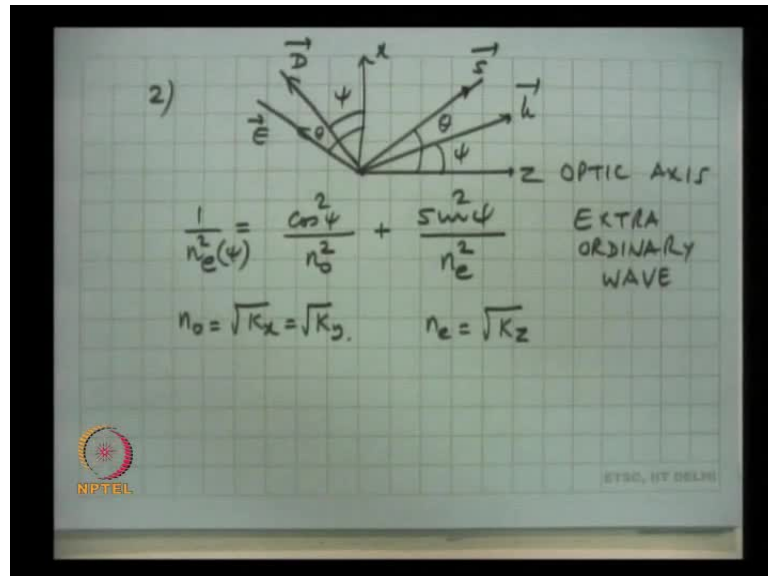 2)
D x S
ψ
E θ θ k
ψ
Z OPTIC AXIS
1/n_e²(ψ) = cos²ψ/n_o² + sin²ψ/n_e²
EXTRA
ORDINARY
WAVE
n_o = √K_x = √K_y. n_e = √K_z
NPTEL
ETSC, IIT DELHI